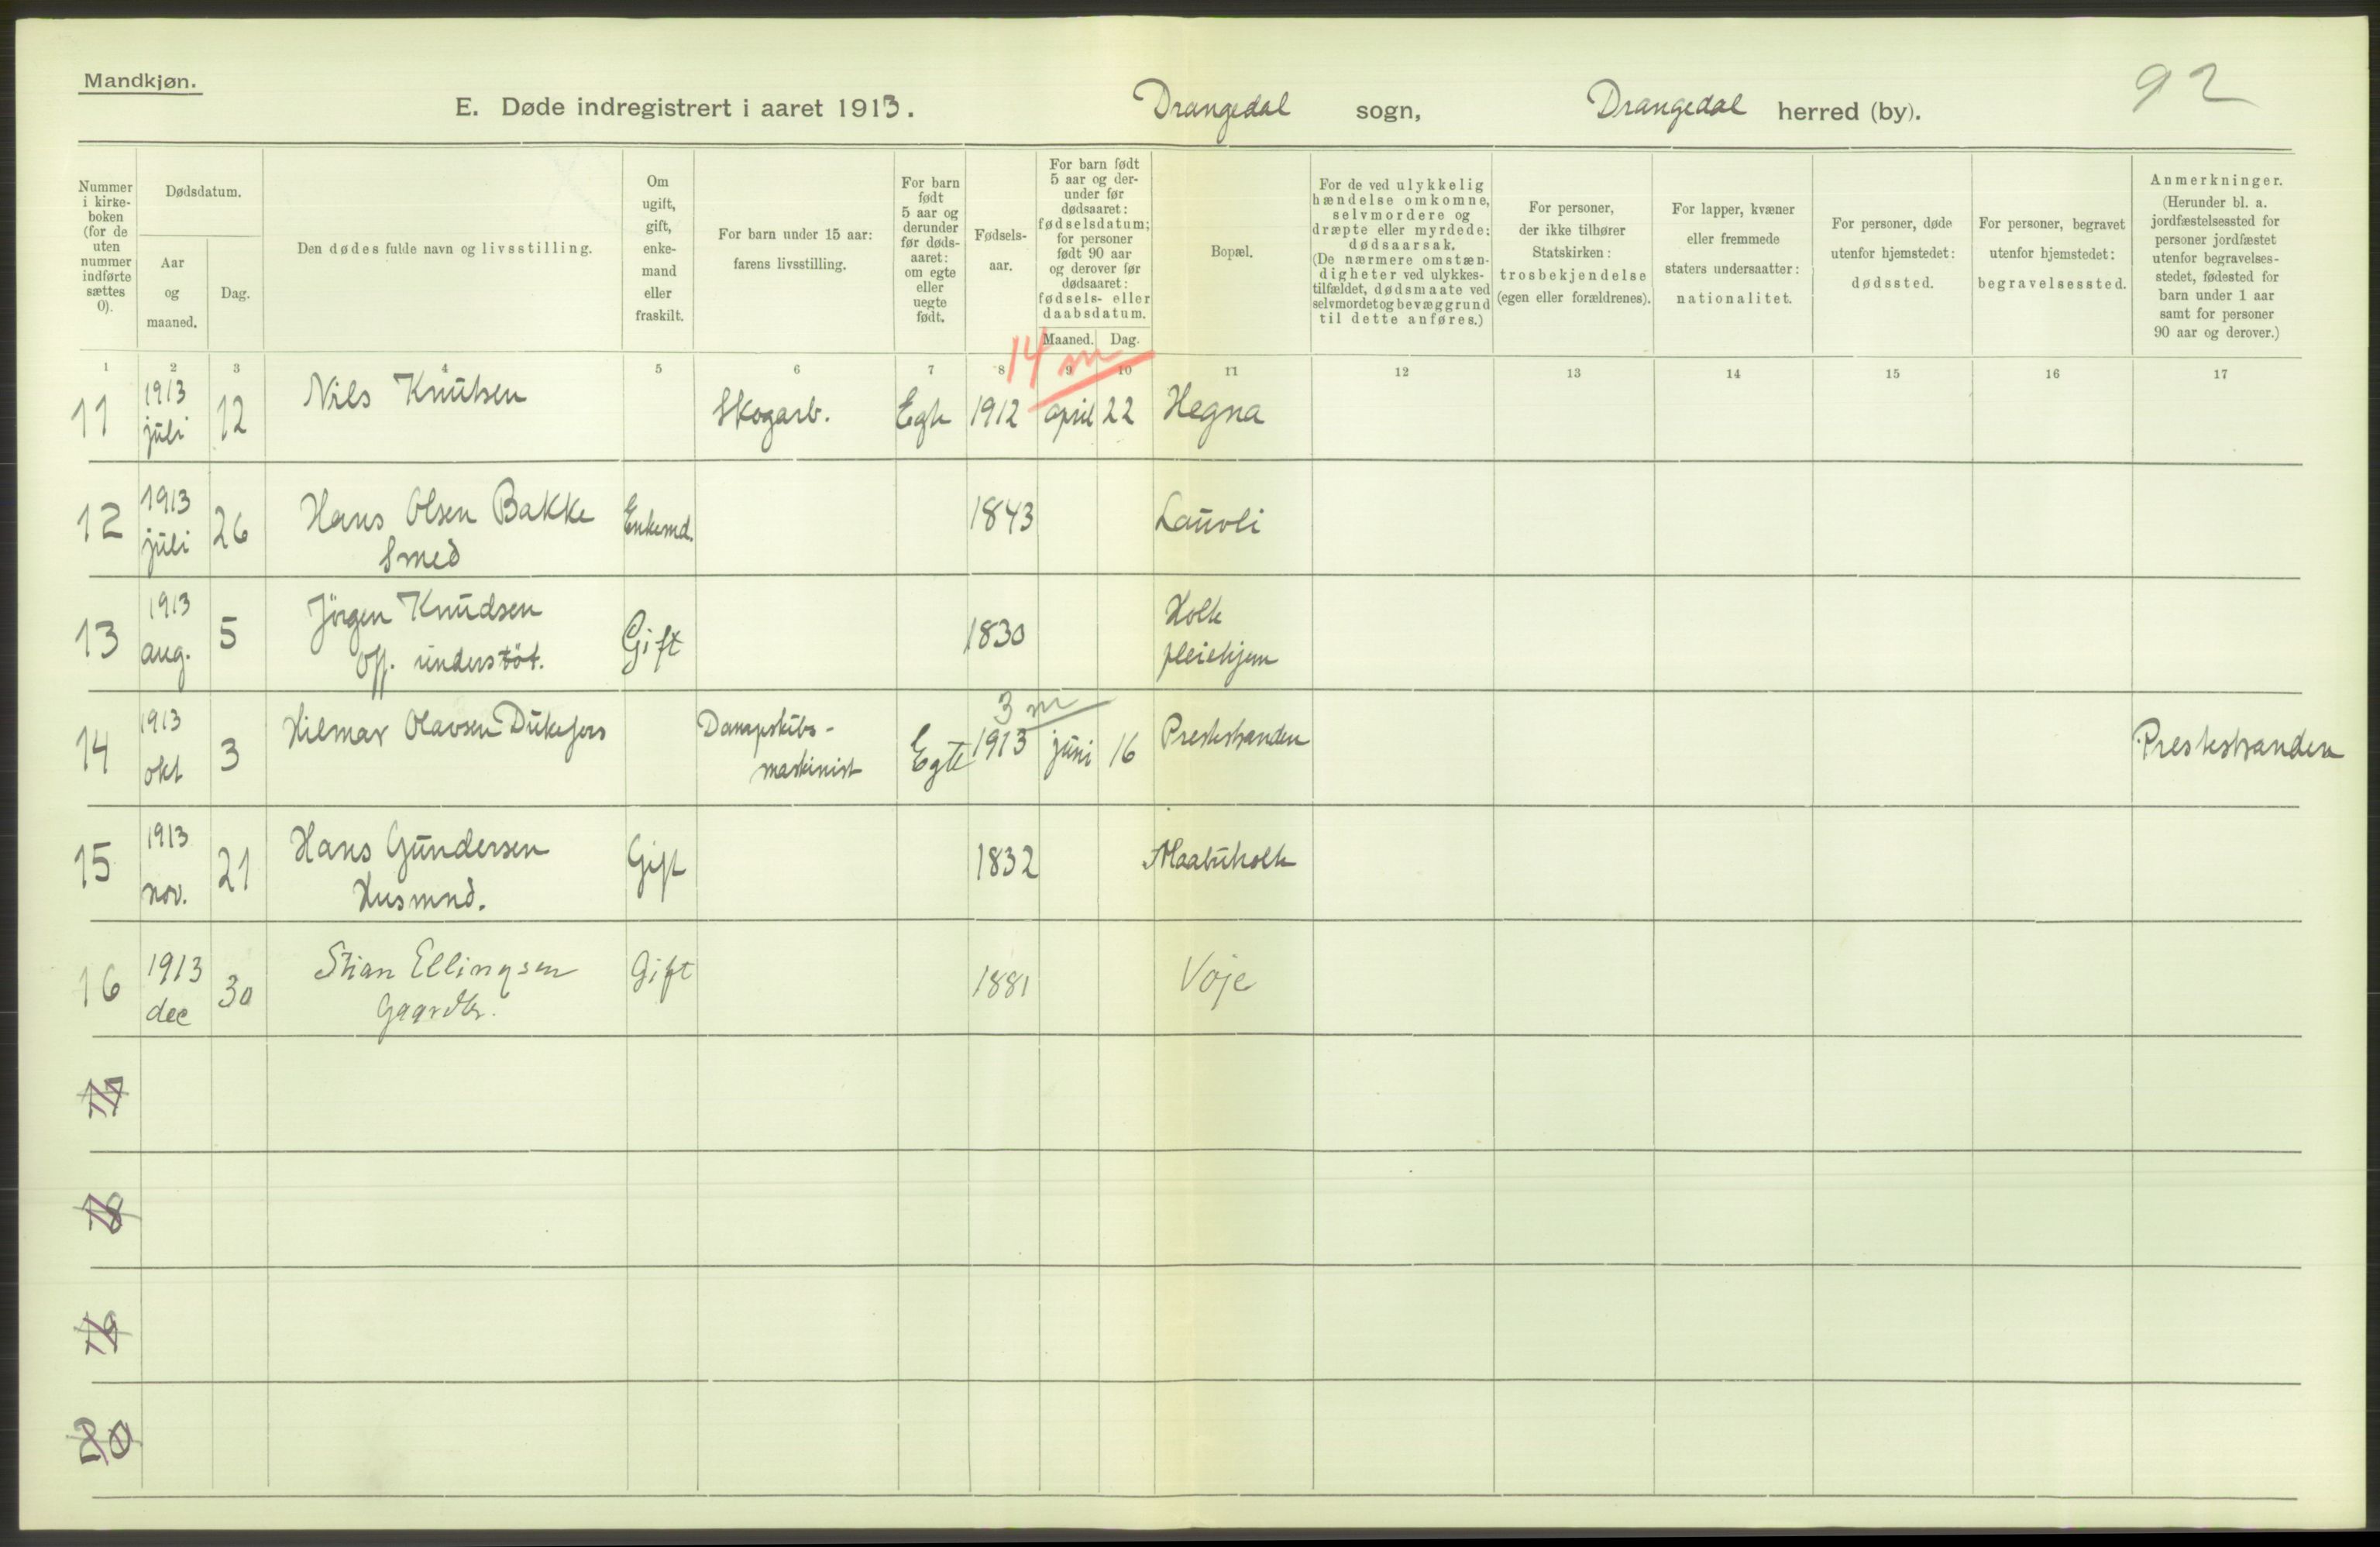 Mandkjøn.
E. Døde indregistrert i aaret 1913. Drangedal sogn, Drangedal herred (by). 92
Nummer i kirke- boken (for de uten nummer indførte sættes 0).
Dødsdatum.
Aar og maaned.
Dag.
Den dødes fulde navn og livsstilling.
Om ugift, gift, enke- mand eller fraskilt.
For barn under 15 aar: farens livsstilling.
For barn født 5 aar og derunder før døds- aaret: om egte eller uegte født.
Fødsels- aar.
For barn født 5 aar og der- under før dødsaaret: fødselsdatum; for personer født 90 aar og derover før dødsaaret: fødsels- eller daabsdatum.
Maaned. Dag.
Bopæl.
For de ved ulykkelig hændelse omkomne, selvmordere og dræpte eller myrdede: dødsaarsak. (De nærmere omstæn- digheter ved ulykkes- tilfældet, dødsmaate ved selvmordet og bevæggrund til dette anføres.)
For personer, der ikke tilhører Statskirken: trosbekjendelse (egen eller forældrenes).
For lapper, kvæner eller fremmede staters undersaatter: nationalitet.
For personer, døde utenfor hjemstedet: dødssted.
For personer, begravet utenfor hjemstedet: begravelsessted.
Anmerkninger. (Herunder bl. a. jordfæstelsessted for personer jordfæstet utenfor begravelses- stedet, fødested for barn under 1 aar samt for personer 90 aar og derover.)
1 2 3 4 5 6 7 8 9 10 11 12 13 14 15 16 17
14 m
11 1913 juli 12 Nils Knutsen Skogarb. Egte 1912 april 22 Hegna
12 1913 juli 26 Hans Olsen Bakke Enkemd. 1843 Lauvli
Smed
13 1913 aug. 5 Jörgen Knudsen Gift 1830 Holte
off. understöt. pleiehjem
3 m
14 1913 okt 3 Hilmar Olavsen Dampskibs- Egte 1913 juni 16 Prestestranden Prestestranden
maskinist
15 1913 nov. 21 Hans Gundersen Gift 1832
Husmnd.
16 1913 dec 30 Stian Ellingsen Gift 1881 Voje
Gaardbr.
20